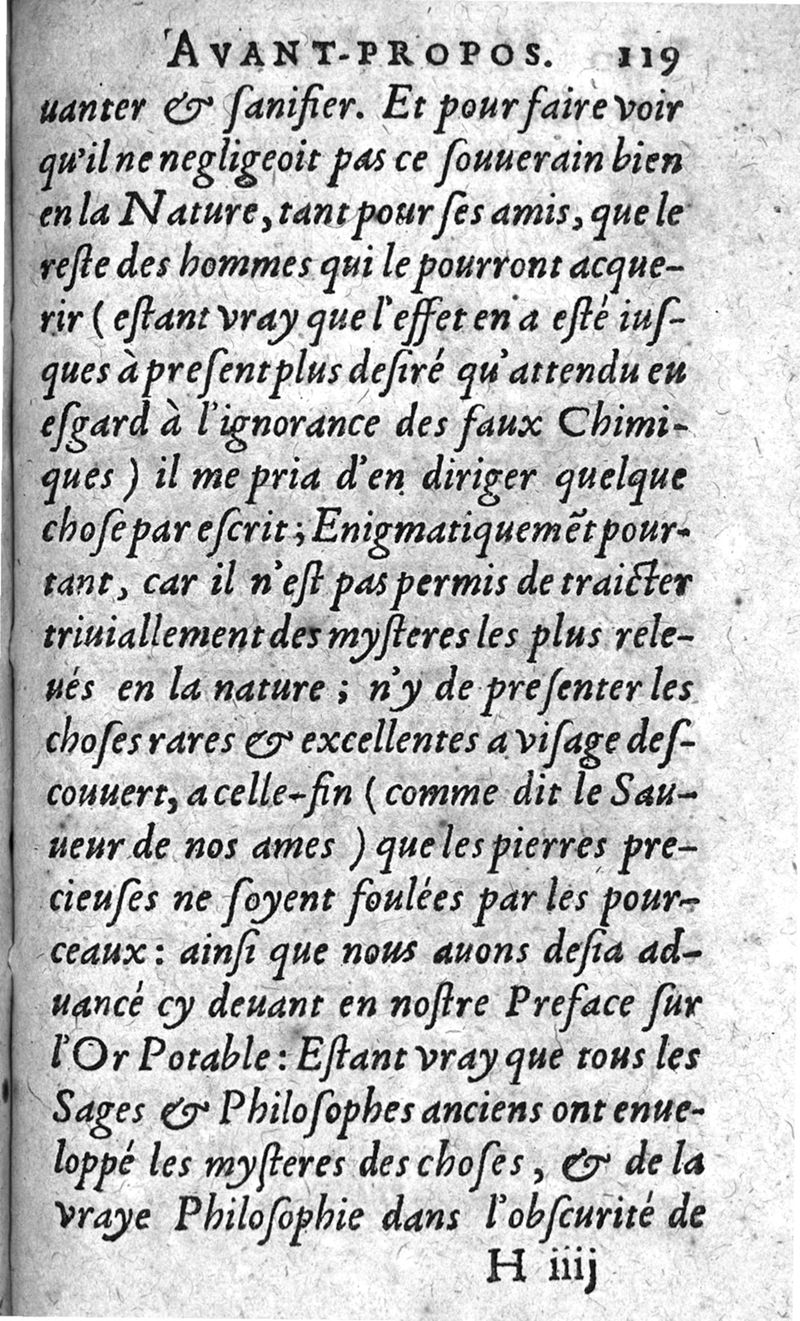 AVANT-PROPOS. 119
uanter & ſanifier. Et pour faire voir
qu'il ne negligeoit pas ce ſouuerain bien
en la Nature, tant pour ſes amis, que le
reſte des hommes qui le pourront acque-
rir ( eſtant vray que l'effet en a eſté iuſ-
ques à preſent plus deſiré qu'attendu eu
eſgard à l'ignorance des faux Chimi-
ques ) il me pria d'en diriger quelque
choſe par eſcrit ; Enigmatiquemẽt pour-
tant, car il n'eſt pas permis de traicter
triuiallement des myſteres les plus rele-
ués en la nature ; n'y de preſenter les
choſes rares & excellentes a viſage deſ-
couuert, a celle-fin ( comme dit le Sau-
ueur de nos ames ) que les pierres pre-
cieuſes ne ſoyent foulées par les pour-
ceaux : ainſi que nous auons deſia ad-
uancé cy deuant en noſtre Preface ſur
l'Or Potable : Eſtant vray que tous les
Sages & Philoſophes anciens ont enue-
loppé les myſteres des choſes, & de la
vraye Philoſophie dans l'obſcurité de
H iiij